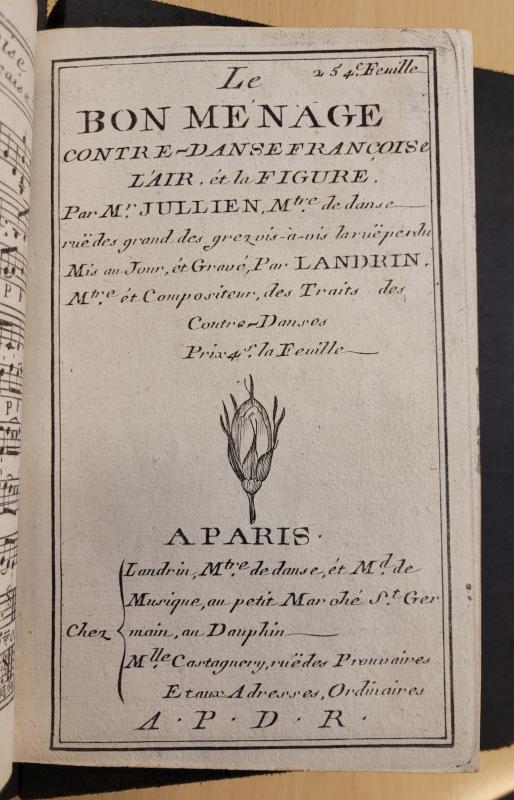 Le 254e. Feuille
BON MÉNAGE
CONTRE-DANSE FRANÇOISe
L'AIR. ét la FIGURE.
Par Mr. JULLIEN, Mtre. de danse
ruë des grand des grez vis-à-vis la ruë perdu
Mis au Jour, ét Gravé, Par LANDRIN.
Mtre ét Compositeur, des Traits des
Contre-Danses
Prix 4s. la Feuille
A PARIS.
Landrin, Mtre. de danse, ét Md. de
Musique, au petit Marché St. Ger
Chez main, au Dauphin
Mlle Castagnery, ruë des Prouvaires
Et aux Adresses, Ordinaires
A. P. D. R.